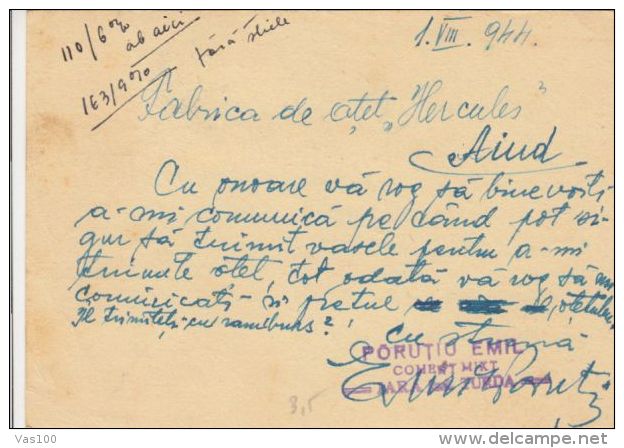 110/6% ab aici
163/9%
fără sticle
1.VIII.944.
Fabrica de oțet „Hercules”
Aiud
Cu onoare vă rog să binevoiți
a-mi comunică pe când pot si-
gur să trimit vasele pentru a-mi
trimite otet, tot odată vă rog să mi
comunicați si pretul otetului,
Il trimiteți cu ramburs?
cu stimă
PORUȚIU EMIL
COMERT MIXT
IARA TURDA
3,5
Vas100
www.delcampe.net